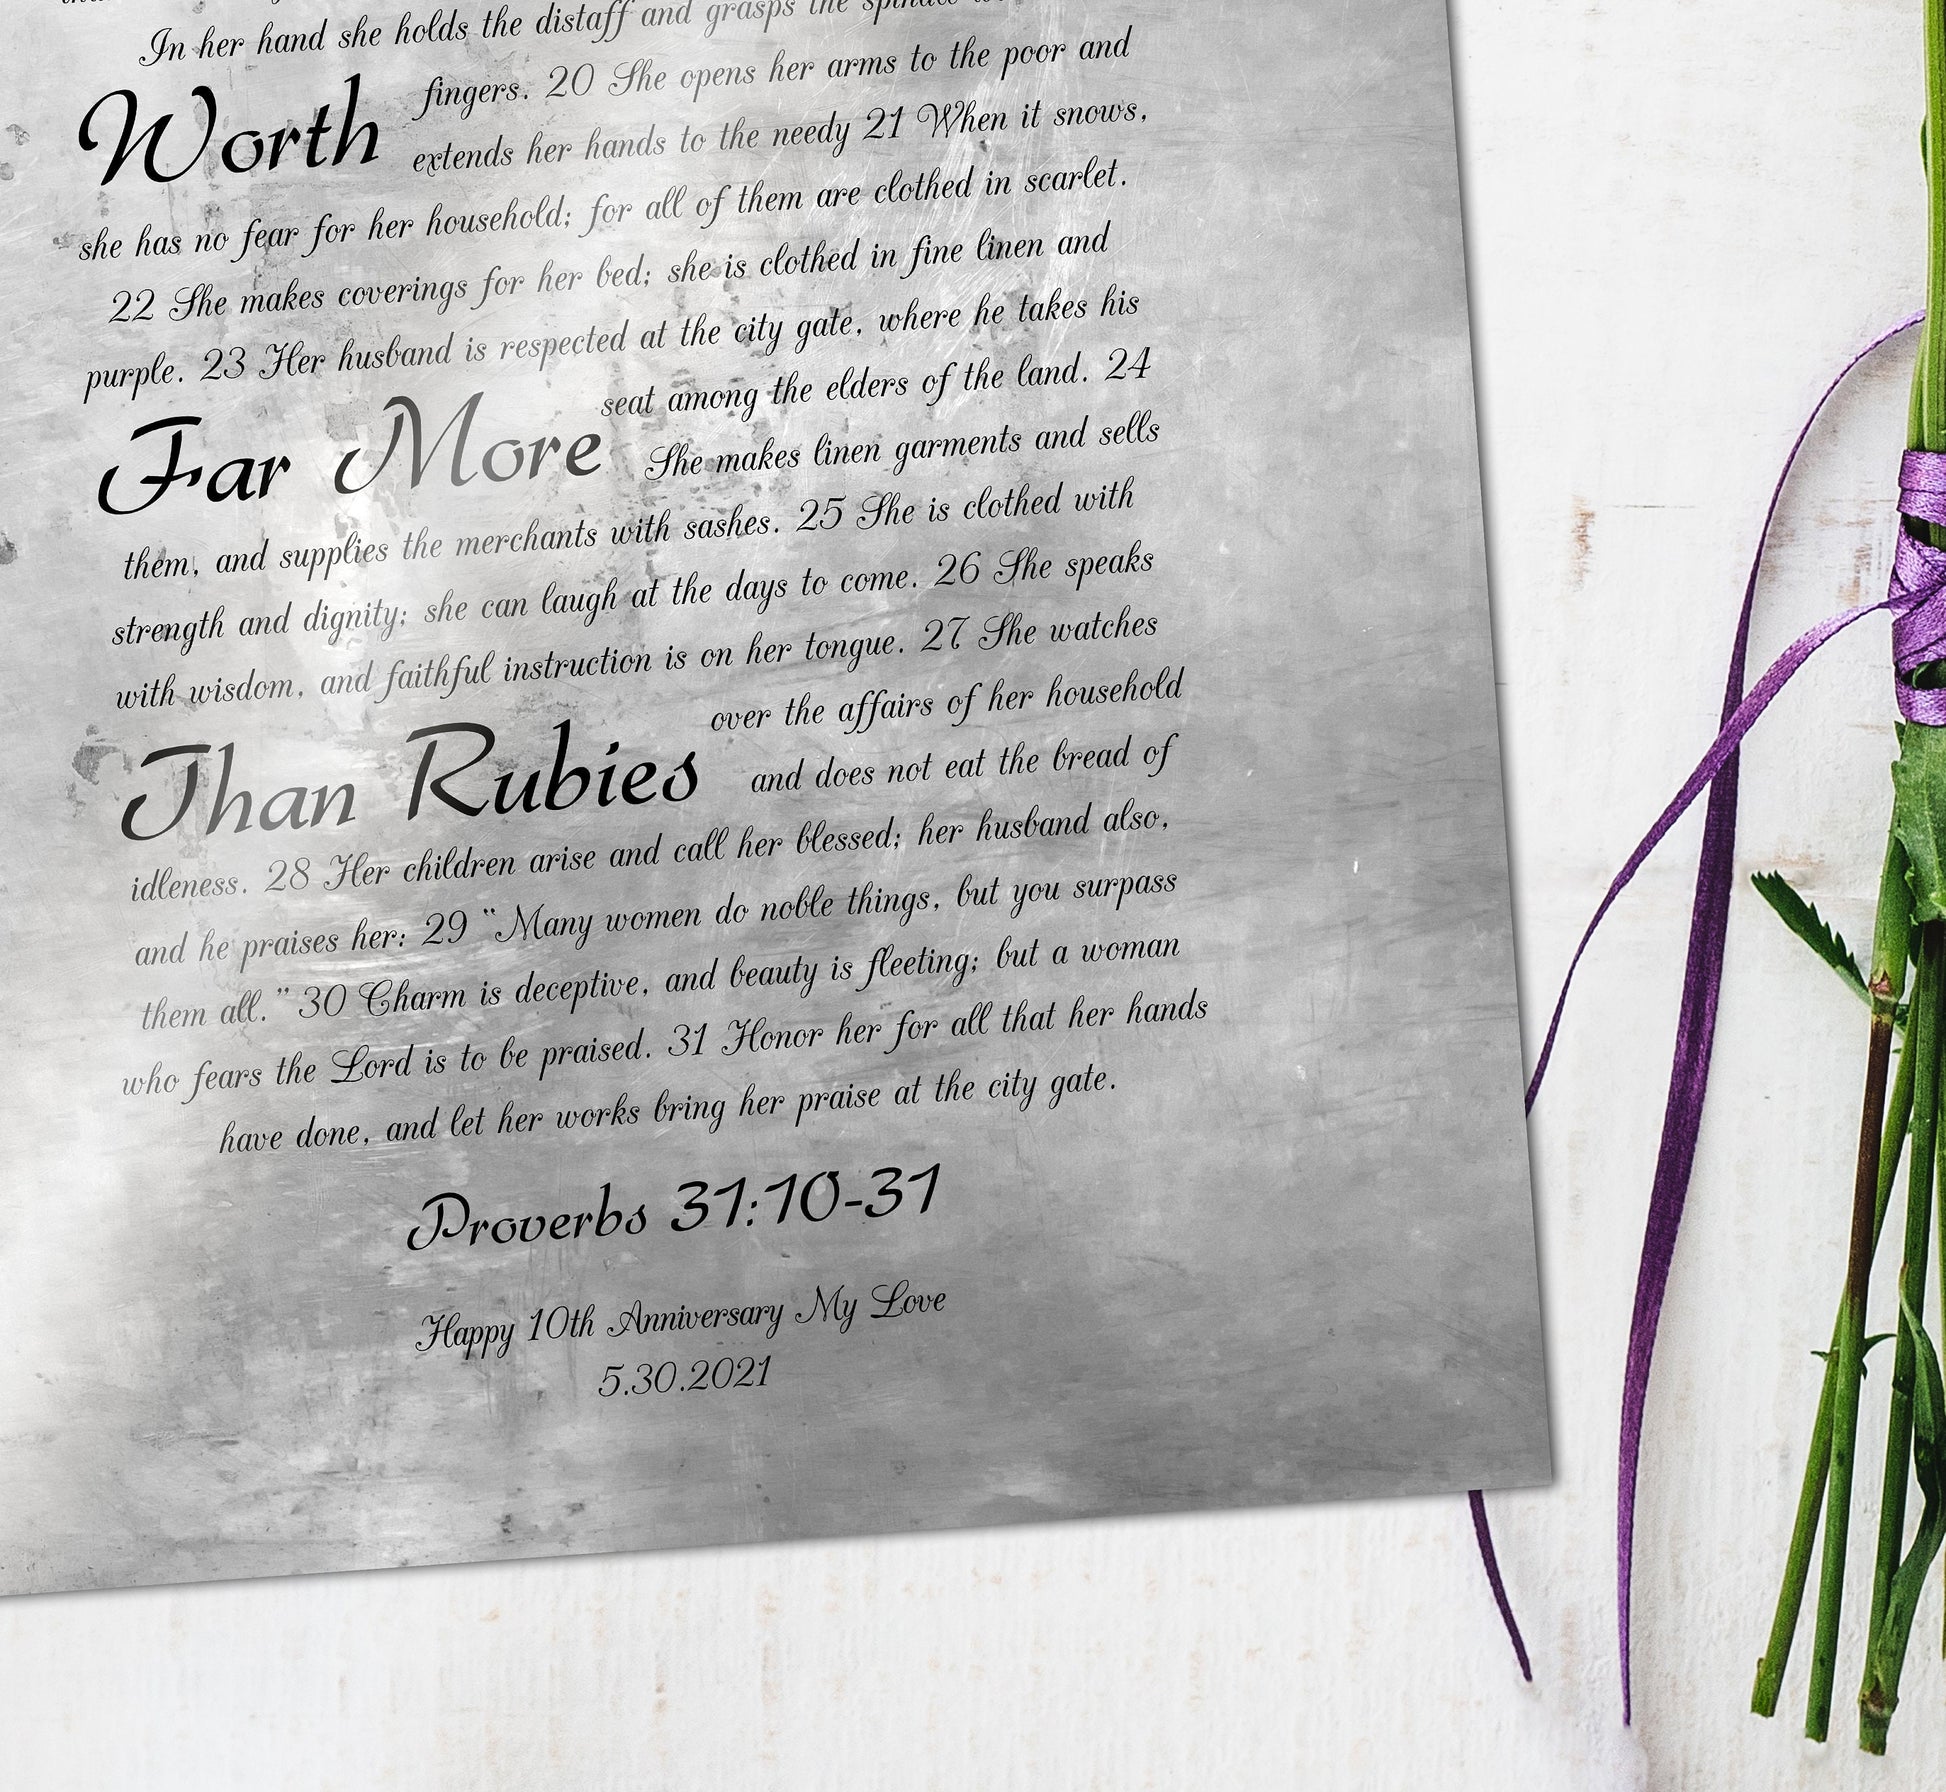 In her hand she holds the distaff and grasps the
fingers. 20 She opens her arms to the poor and
Worth
extends her hands to the needy 21 When it snows,
she has no fear for her household; for all of them are clothed in scarlet.
22 She makes coverings for her bed; she is clothed in fine linen and
purple. 23 Her husband is respected at the city gate, where he takes his
seat among the elders of the land. 24
Far More
She makes linen garments and sells
them, and supplies the merchants with sashes. 25 She is clothed with
strength and dignity; she can laugh at the days to come. 26 She speaks
with wisdom, and faithful instruction is on her tongue. 27 She watches
over the affairs of her household
Than Rubies
and does not eat the bread of
idleness. 28 Her children arise and call her blessed; her husband also,
and he praises her: 29 “Many women do noble things, but you surpass
them all.” 30 Charm is deceptive, and beauty is fleeting; but a woman
who fears the Lord is to be praised. 31 Honor her for all that her hands
have done, and let her works bring her praise at the city gate.
Proverbs 31:10-31
Happy 10th Anniversary My Love
5.30.2021